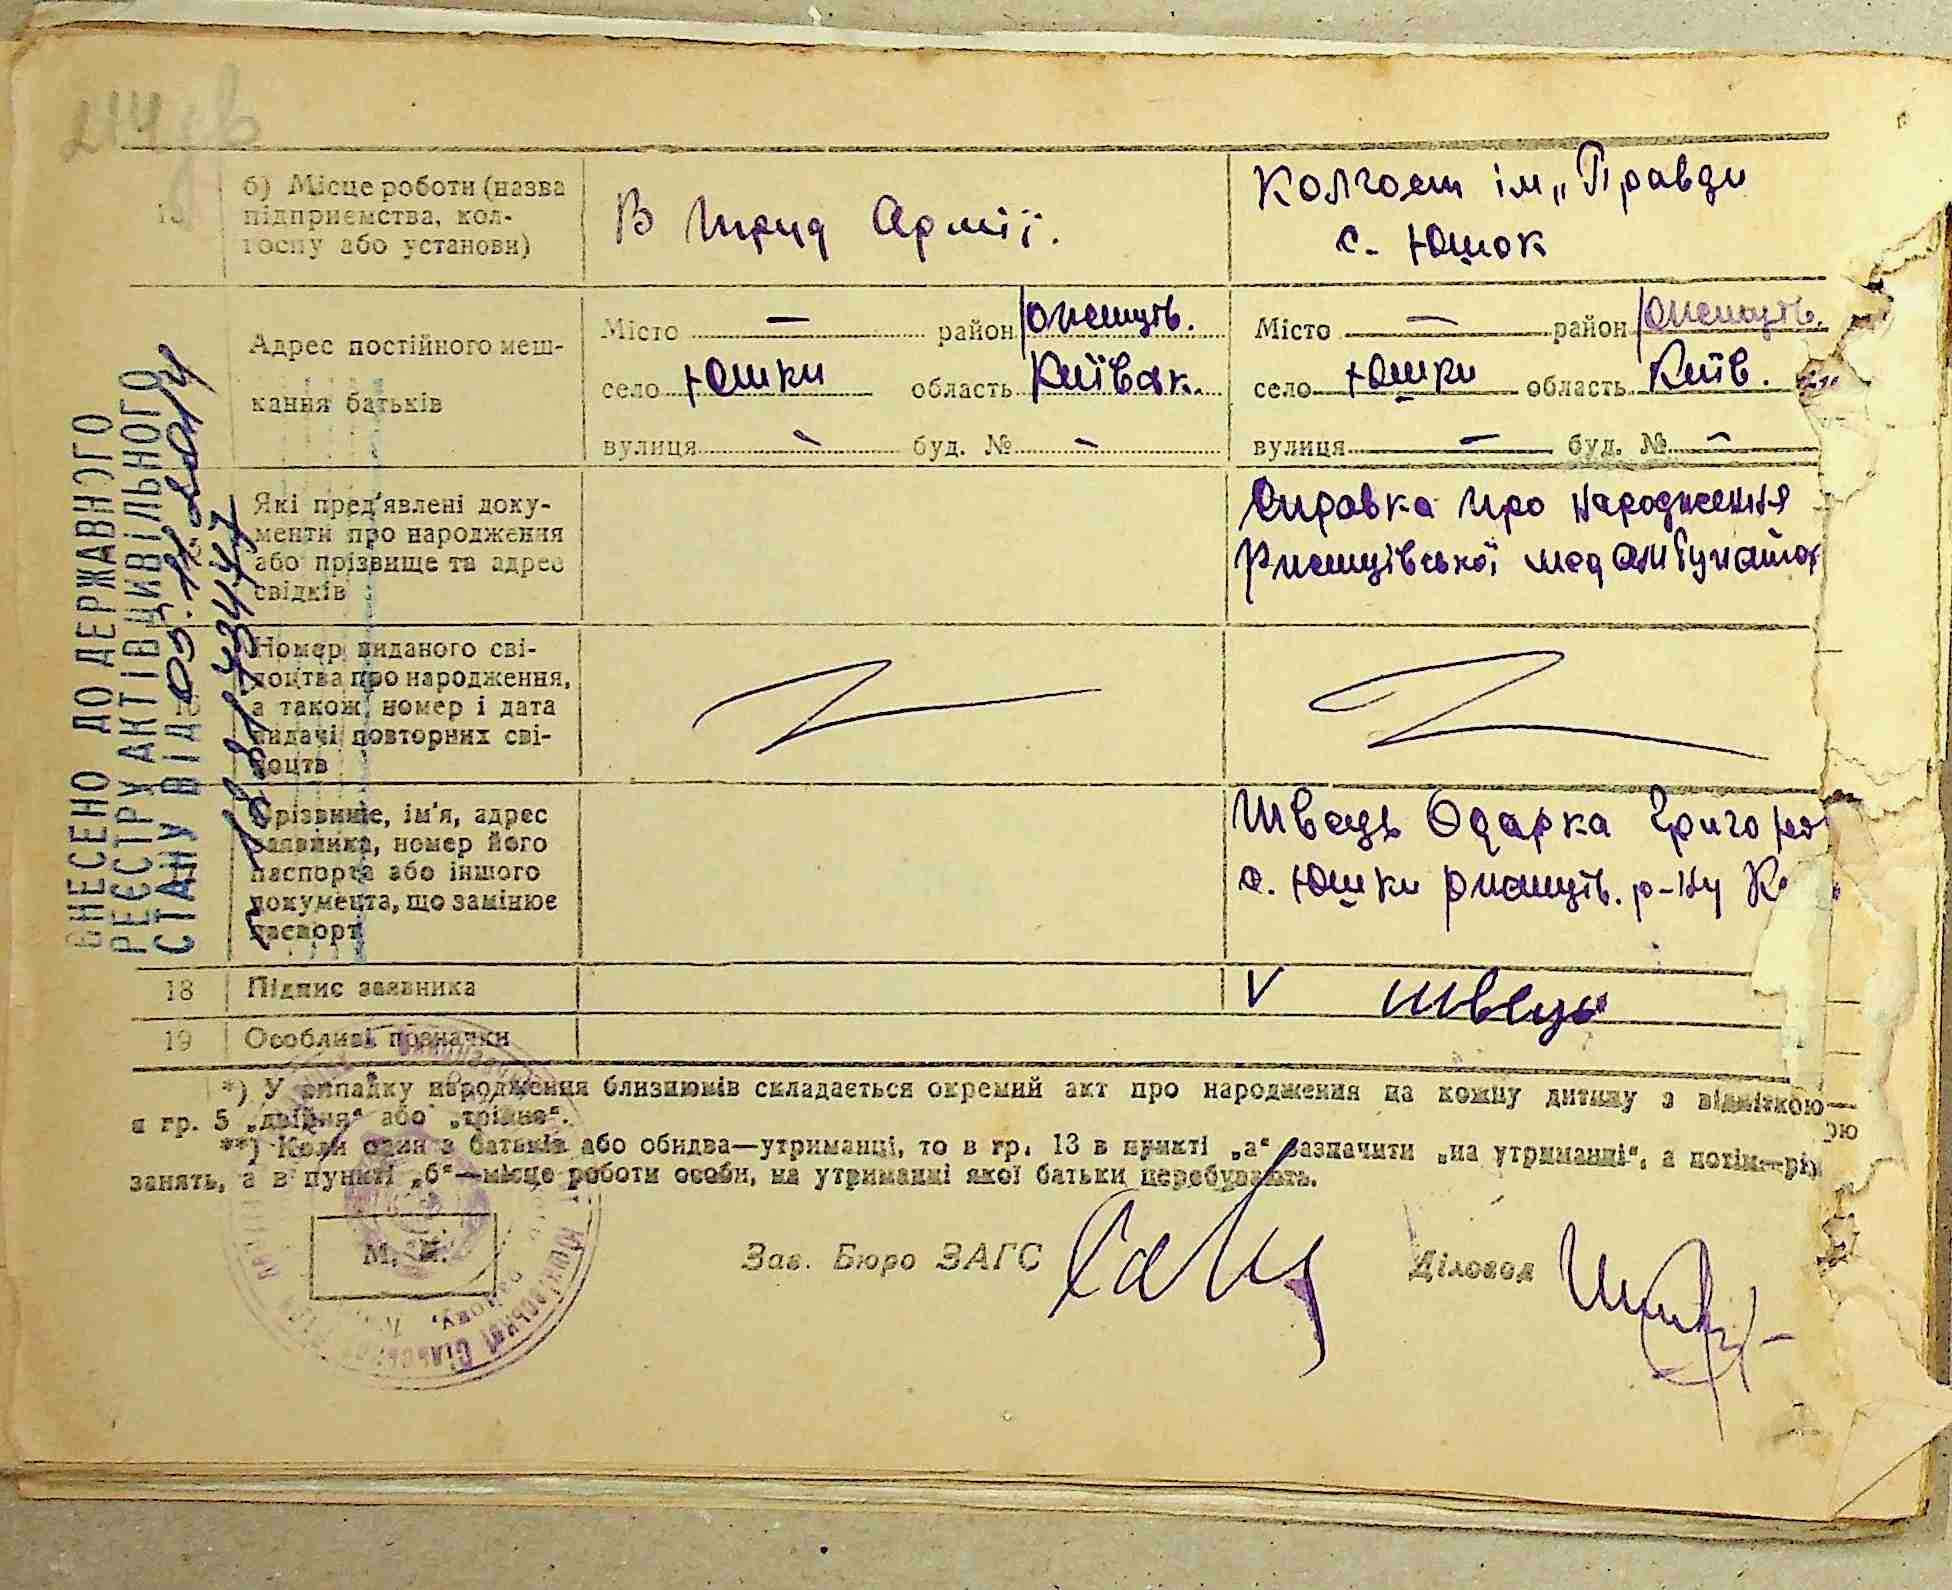 244 зв
б) Місце роботи (назва
підприємства, кол-
госпу або установи)
В труд Армії.
Колгосп ім „Правди
с. Юшок
Адрес постійного меш-
кання батьків
Місто — район Ржищів.
село Юшки область Київськ.
вулиця — буд. № —
Місто — район Ржищів.
село Юшки область Київ.
вулиця — буд. № —
Які пред'явлені доку-
менти про народження
або прізвище та адрес
свідків
Справка про народження
Ржищівської мед амбулатор
Номер виданого сві-
доцтва про народження,
а також номер і дата
видачі повторних сві-
доцтв
Прізвище, ім'я, адрес
заявника, номер його
паспорта або іншого
документа, що замінює
паспорт
Швець Одарка Григор
с. Юшки Ржищів. р-ну К
18 Підпис заявника
V Швець
19 Особливі позначки
*) У випадку народження близнюків складається окремий акт про народження на кожну дитину з відміткою
в гр. 5 „двійня“ або „трійня“.
**) Коли один з батьків або обидва—утриманці, то в гр. 13 в пункті „а“ зазначити „на утриманні“, а потім рі
занять, а в пункті „б“—місце роботи особи, на утриманні якої батьки перебувають.
М. П.
Зав. Бюро ЗАГС
Діловод
ВНЕСЕНО ДО ДЕРЖАВНОГО
РЕЄСТРУ АКТІВ ЦИВІЛЬНОГО
СТАНУ ВІД